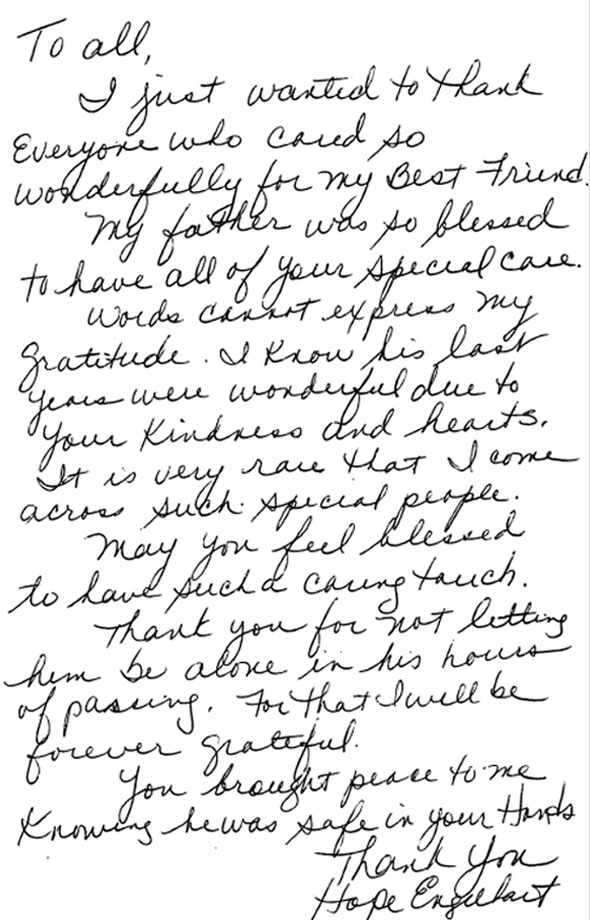 To all,
I just wanted to thank
Everyone who cared so
wonderfully for my Best Friend.
My father was so blessed
to have all of your special care.
Words cannot express my
gratitude. I know his last
years were wonderful due to
your kindness and hearts.
It is very rare that I come
across such special people.
May you feel blessed
to have such a caring touch.
Thank you for not letting
him be alone in his hours
of passing. For that I will be
forever grateful.
You brought peace to me
Knowing he was safe in your Hands
Thank You
Hope Englehart